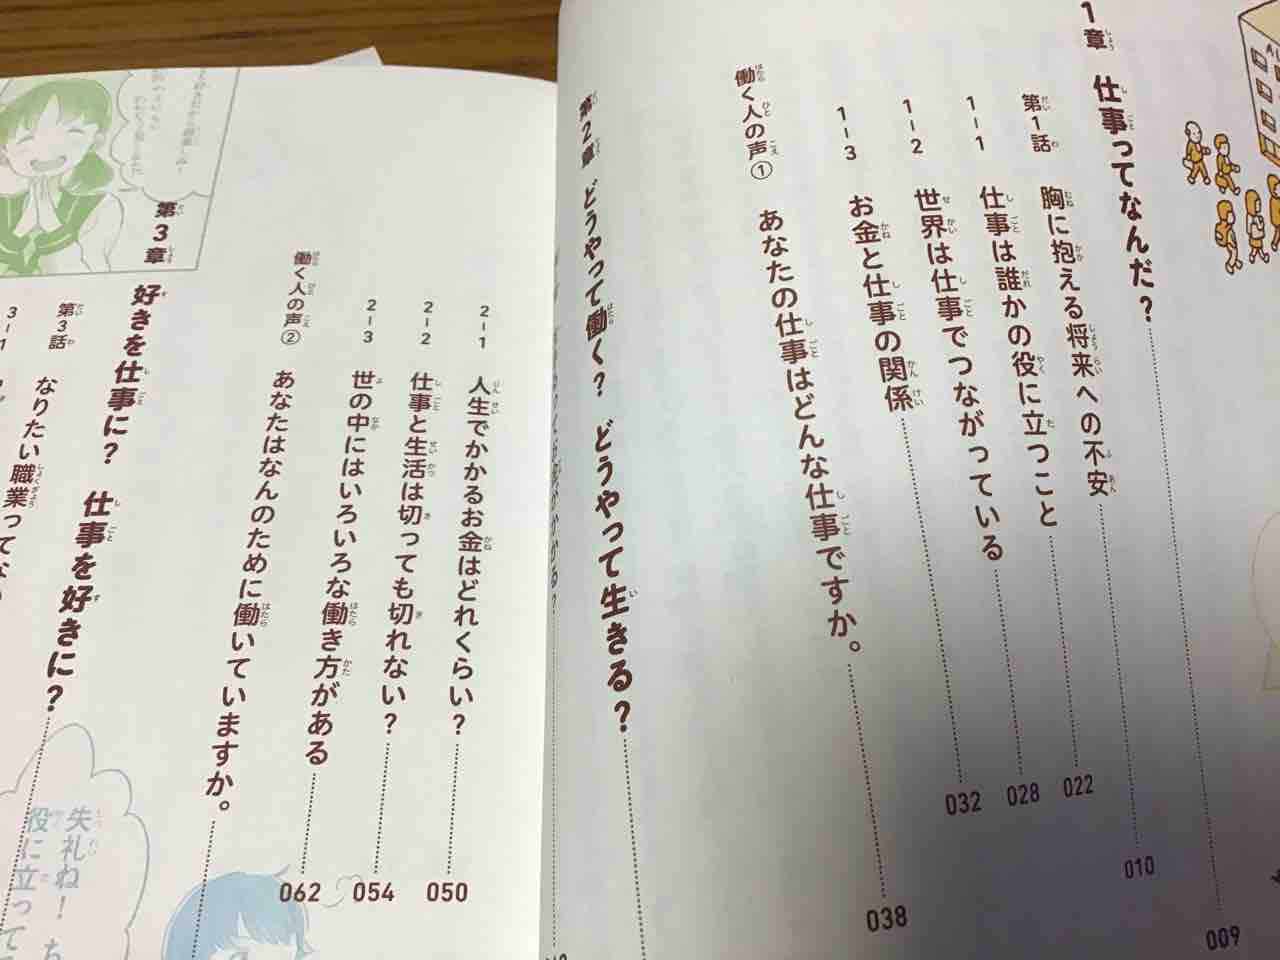 1章 仕事ってなんだ? 009
第1話 胸に抱える将来への不安 010
1-1 仕事は誰かの役に立つこと 022
1-2 世界は仕事でつながっている 028
1-3 お金と仕事の関係 032
働く人の声① あなたの仕事はどんな仕事ですか。 038
第2章 どうやって働く? どうやって生きる?
2-1 人生でかかるお金はどれくらい? 050
2-2 仕事と生活は切っても切れない? 054
2-3 世の中にはいろいろな働き方がある 062
働く人の声② あなたはなんのために働いていますか。
第3章 好きを仕事に? 仕事を好きに?
第3話 なりたい職業ってな
3-1
失礼ね! ち
役に立って